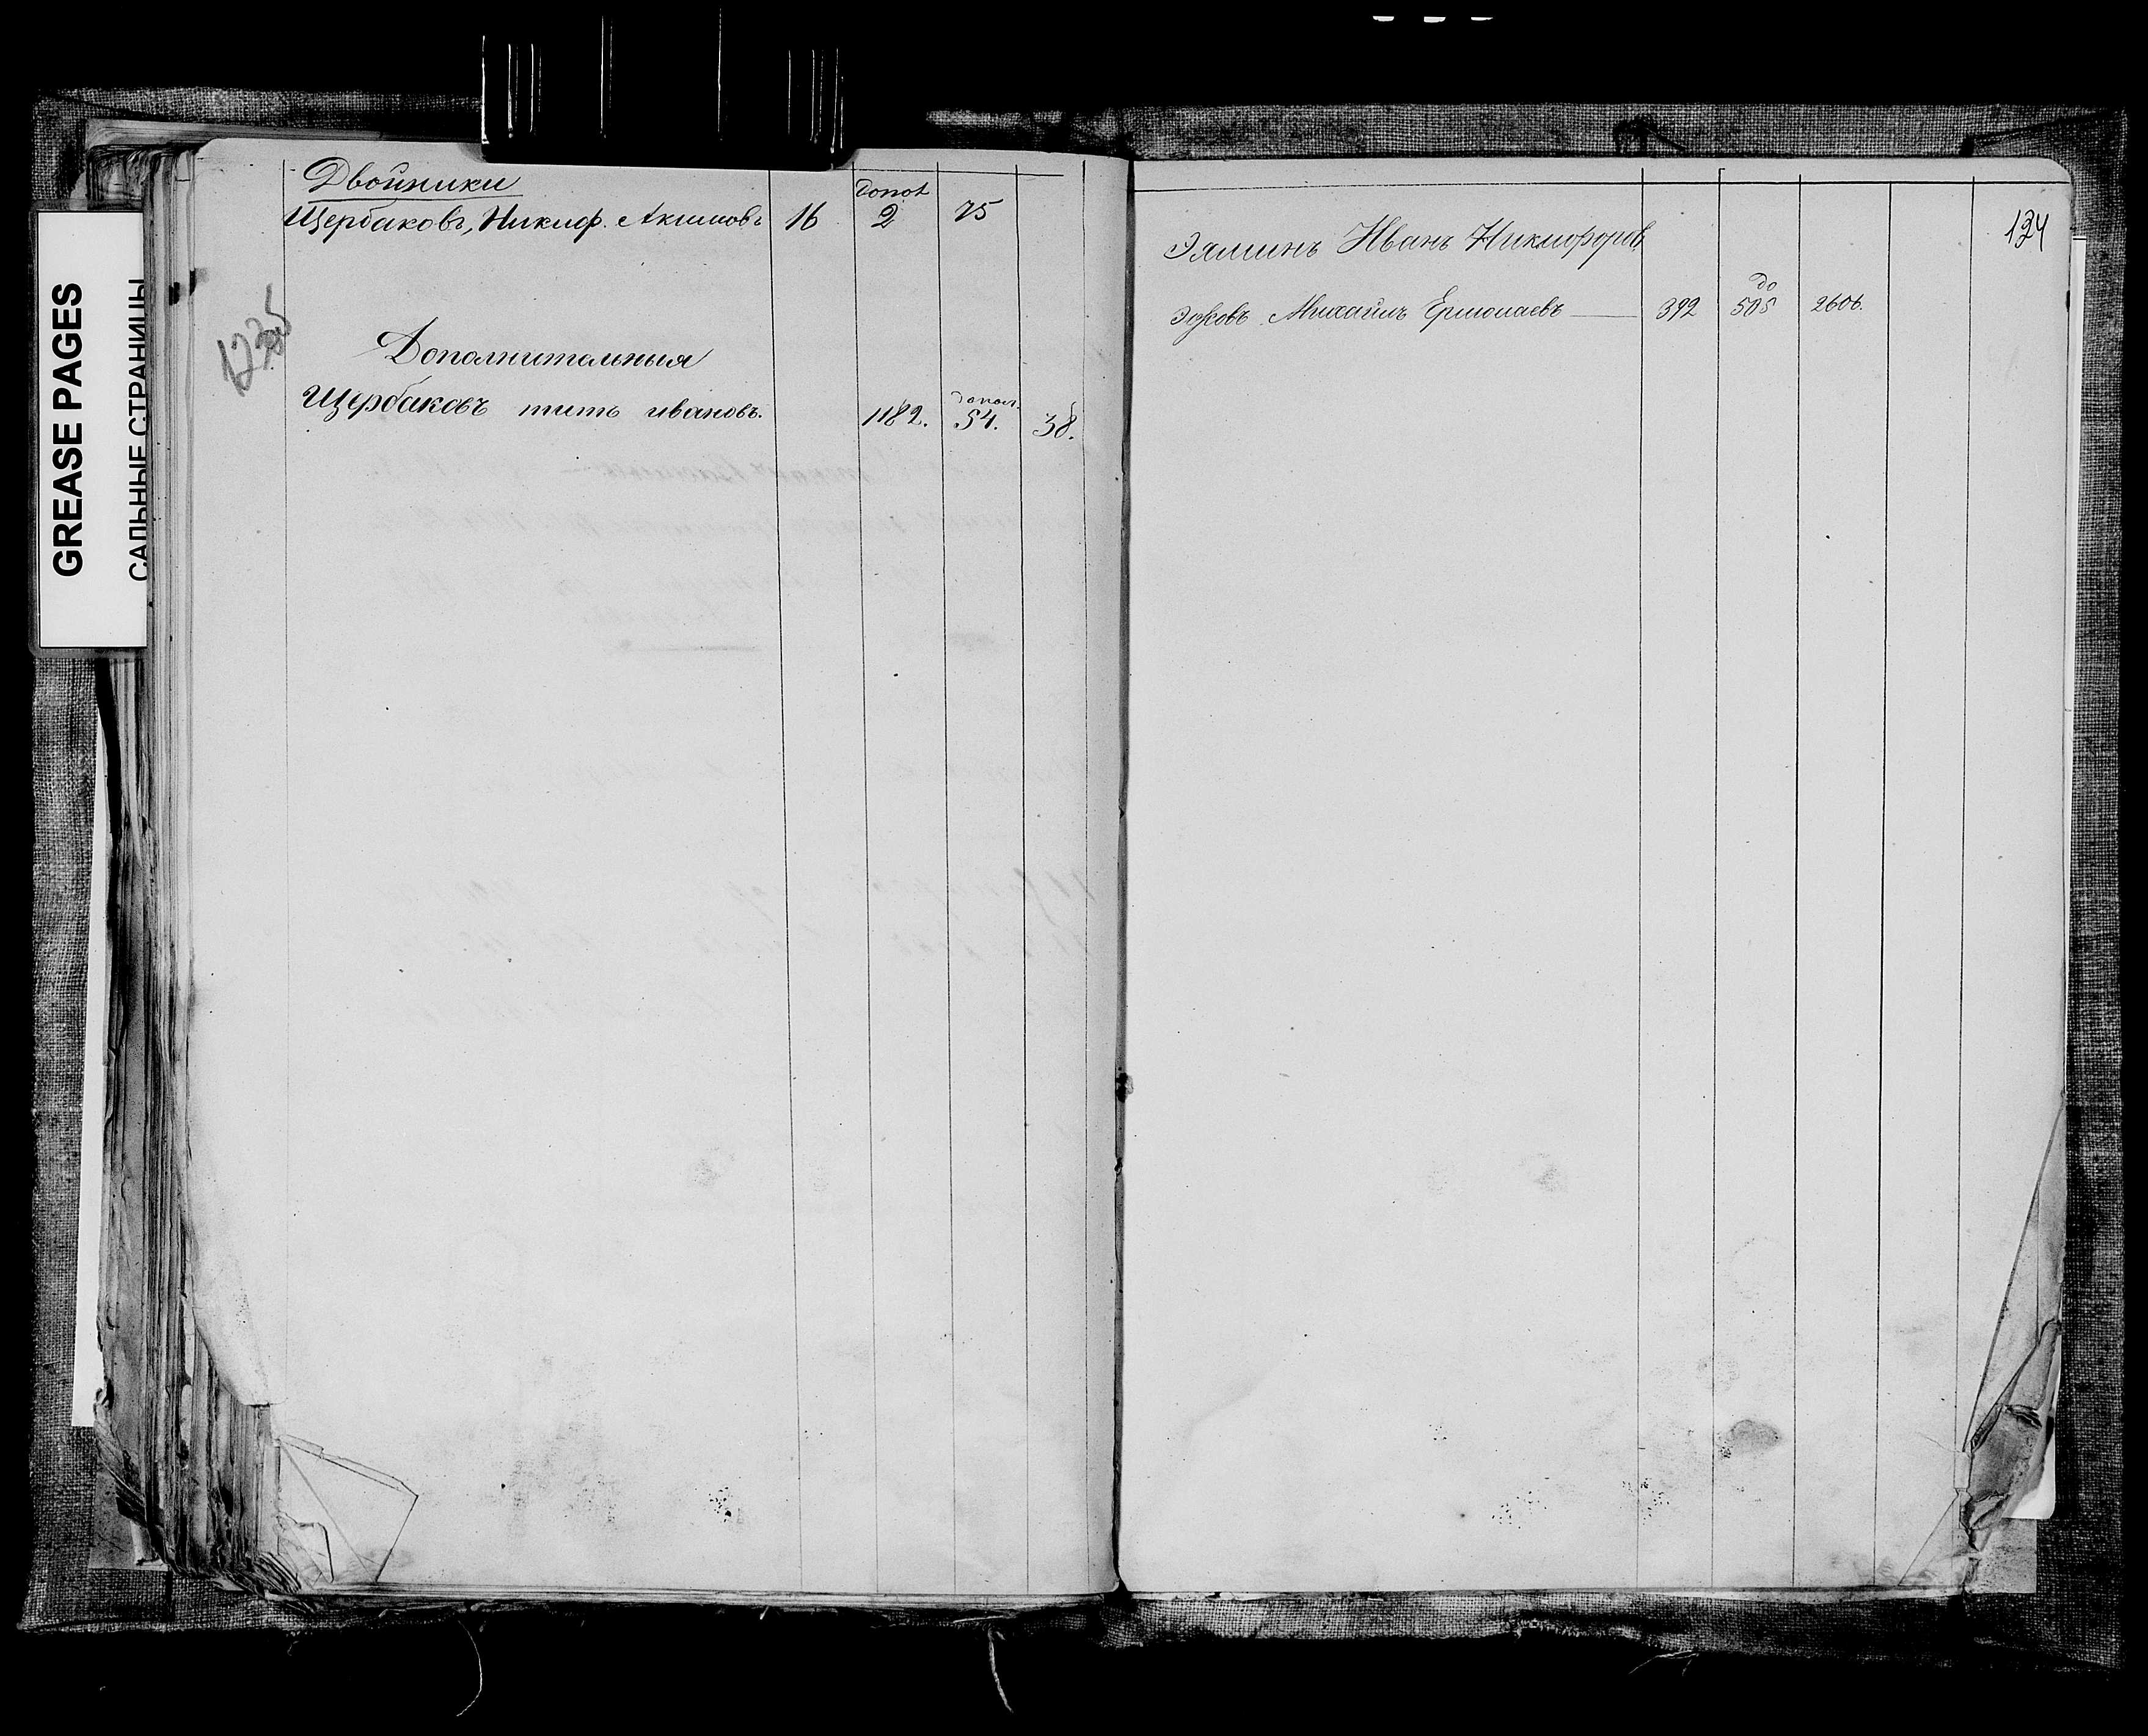 GREASE PAGES
САЛЬНЫЕ СТРАНИЦЫ
Двойники
Щербаковъ, Никиф. Акимовъ 16 допол 2 75
Дополнительныя
Щербаковъ титъ ивановъ. 1182. допол. 54. 38.
134
Эяминъ Иванъ Никифоров
Михаилъ Ермолаевъ 392 до 505 2606.